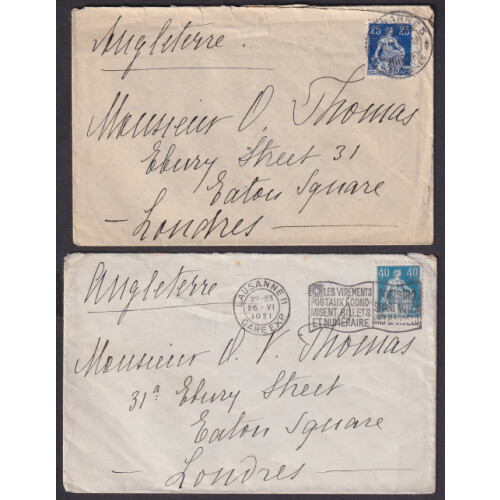 Angleterre.
25 25
Monsieur O. Thomas
Ebury Street 31
Eaton Square
— Londres —
Angleterre
LAUSANNE 11
22-23
26·VI
1921
GARE EXP.
LES VIREMENTS
POSTAUX ECONO-
MISENT BILLETS
ET NUMÉRAIRE
40 40
Monsieur O. V. Thomas
31a Ebury Street
Eaton Square
— Londres —